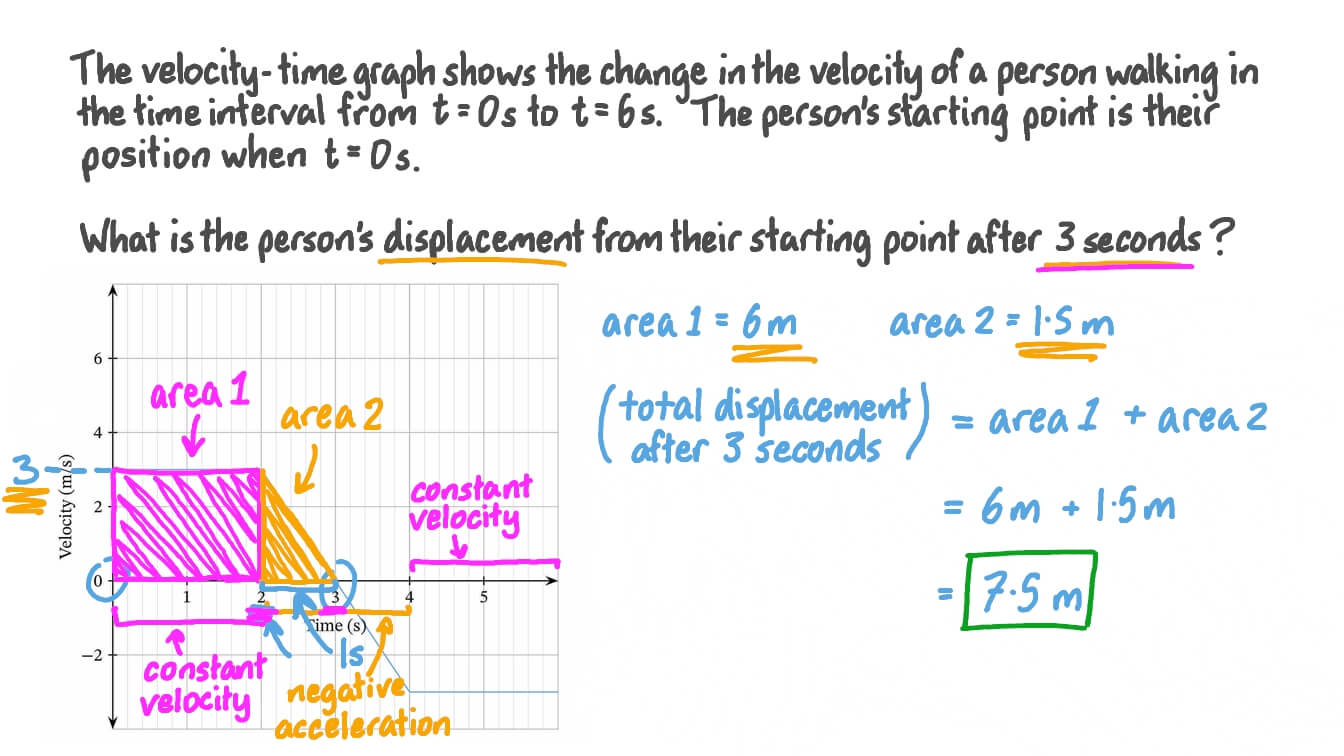 The velocity-time graph shows the change in the velocity of a person walking in
the time interval from t = 0s to t = 6s. The person's starting point is their
position when t = 0s.
What is the person's displacement from their starting point after 3 seconds?
area 1 = 6m
area 2 = 1.5m
(total displacement after 3 seconds) = area 1 + area 2
= 6m + 1.5m
= 7.5m
6
4
2
0
-2
3
Velocity (m/s)
area 1
area 2
constant
velocity
1
2
3
4
5
Time (s)
1s
constant
velocity
negative
acceleration